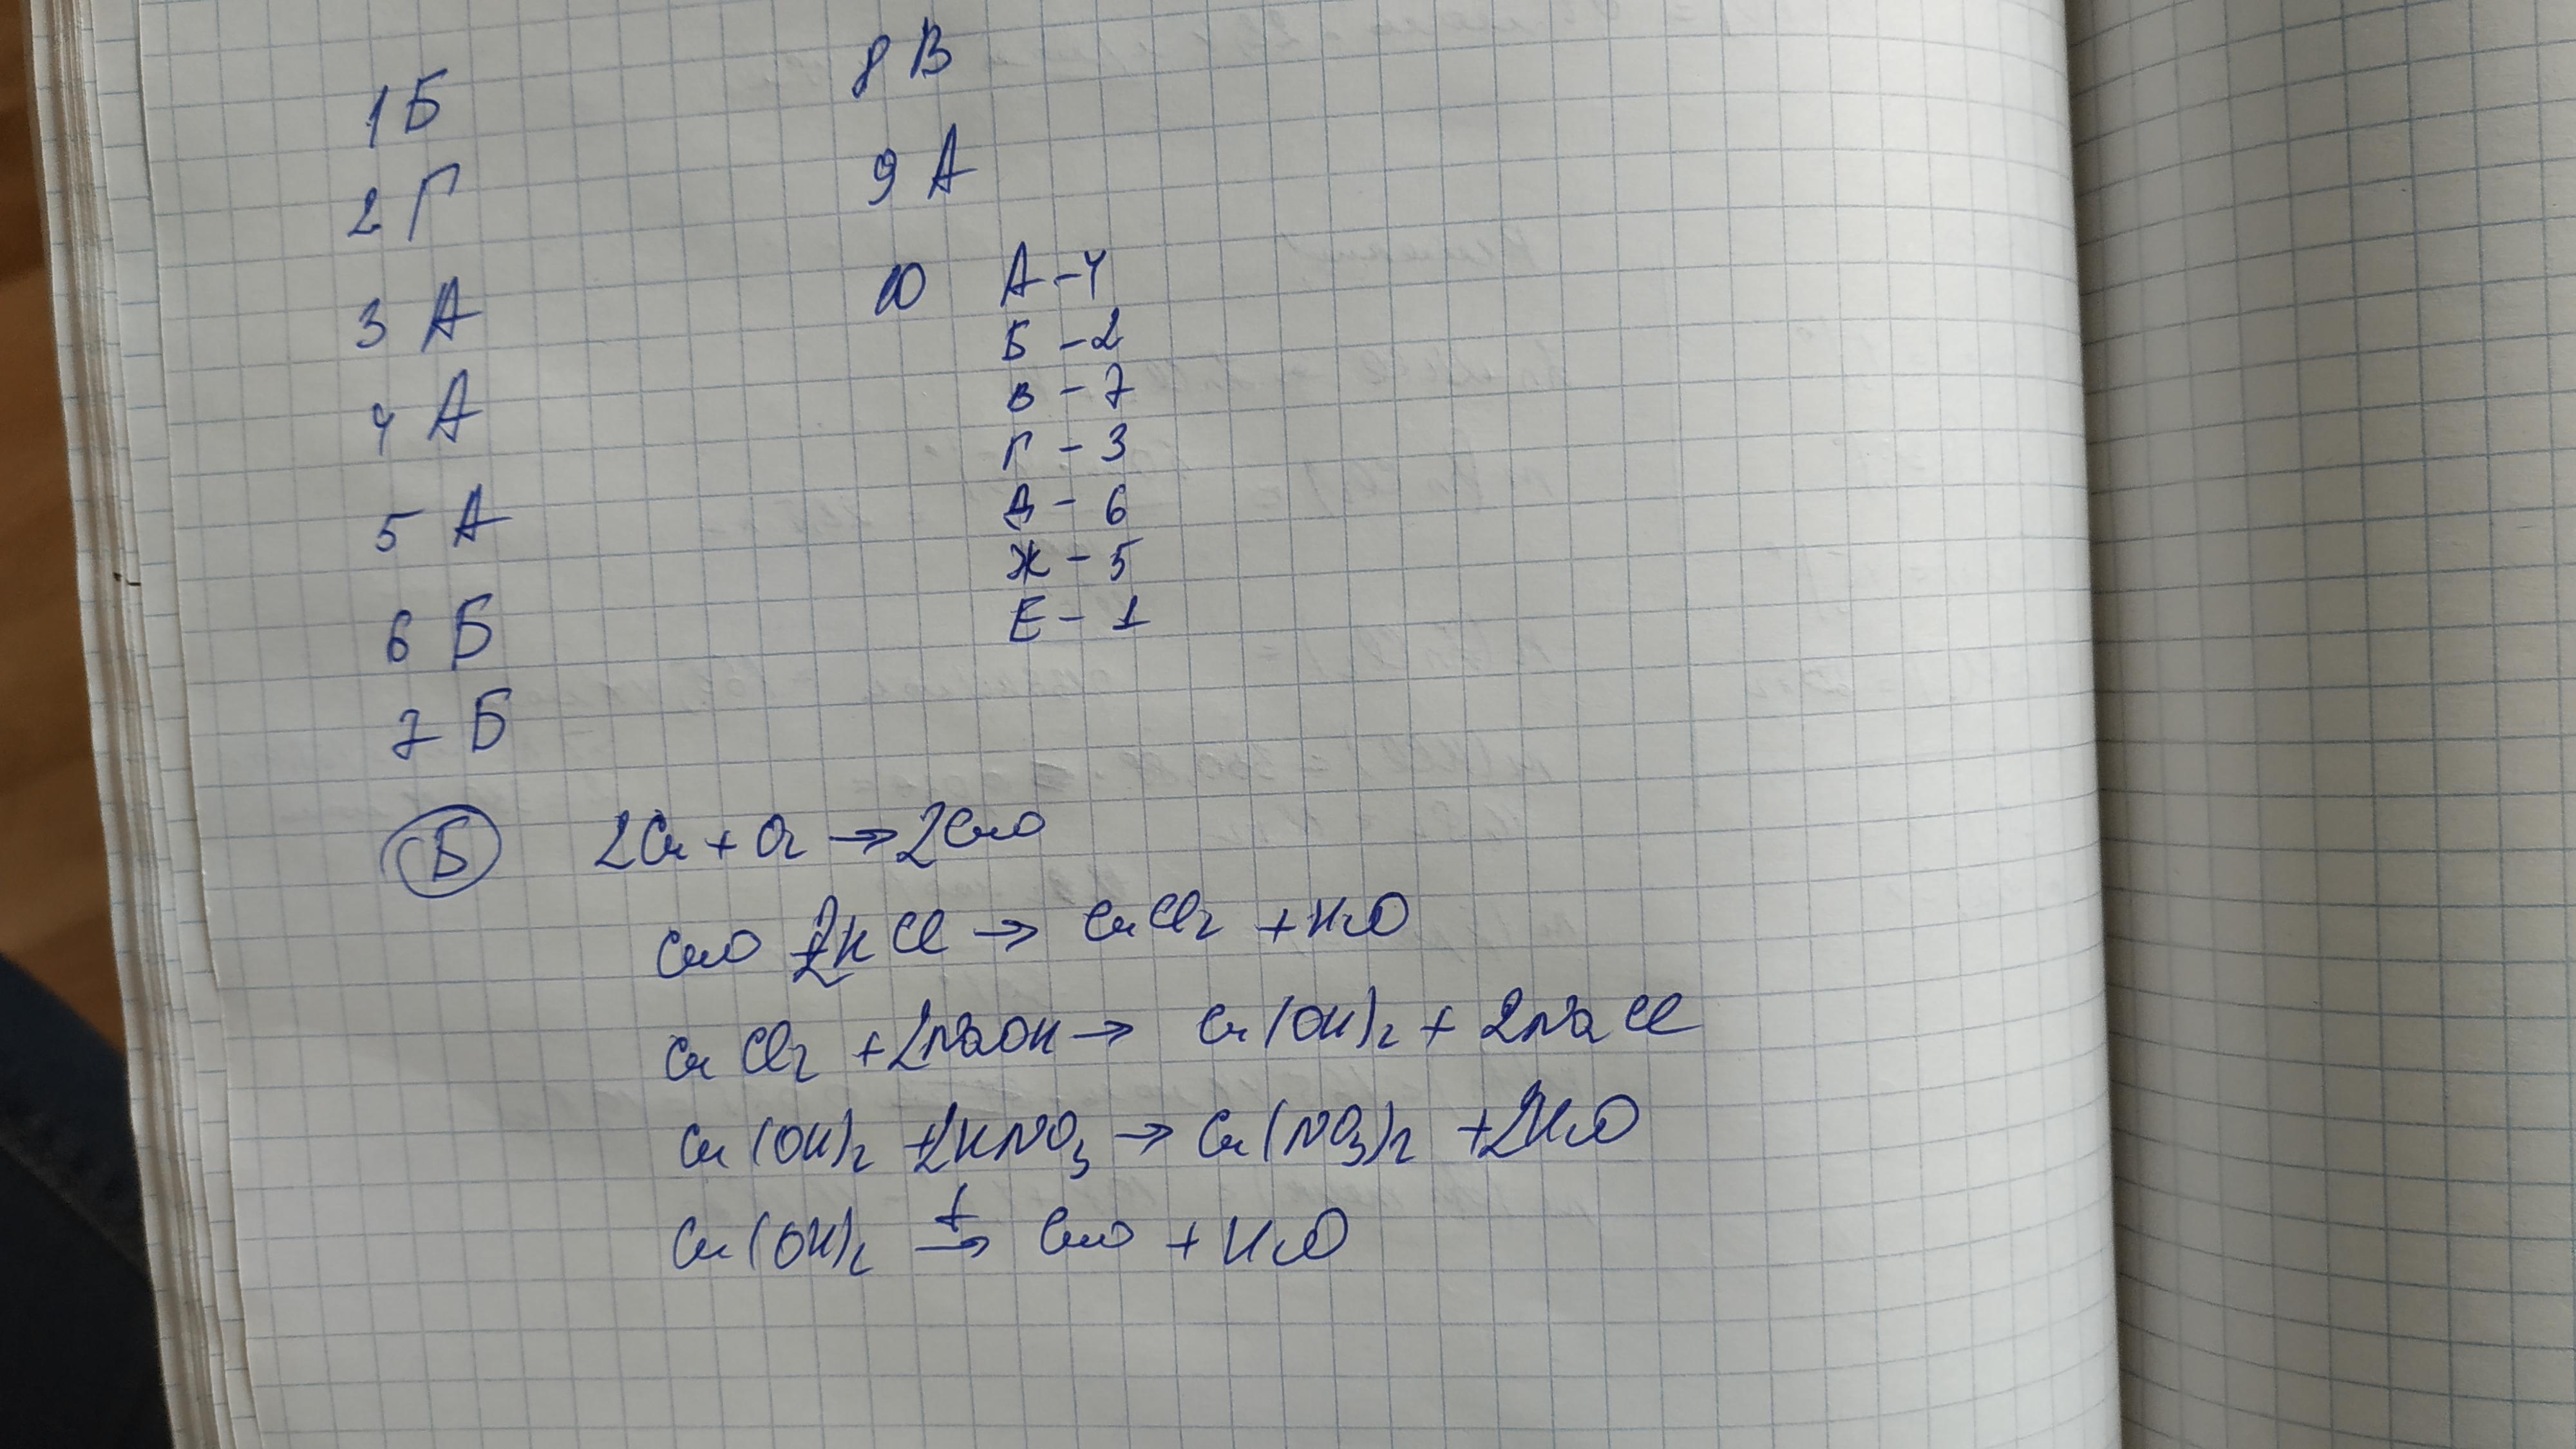 1 Б
2 Г
3 А
4 А
5 А
6 Б
7 Б
8 В
9 А
10 А – 4
Б – 2
В – 7
Г – 3
Д – 6
Ж – 5
Е – 1
Б 2Cu + O₂ → 2CuO
CuO + 2HCl → CuCl₂ + H₂O
CuCl₂ + 2NaOH → Cu(OH)₂ + 2NaCl
Cu(OH)₂ + 2HNO₃ → Cu(NO₃)₂ + 2H₂O
Cu(OH)₂ t→ CuO + H₂O